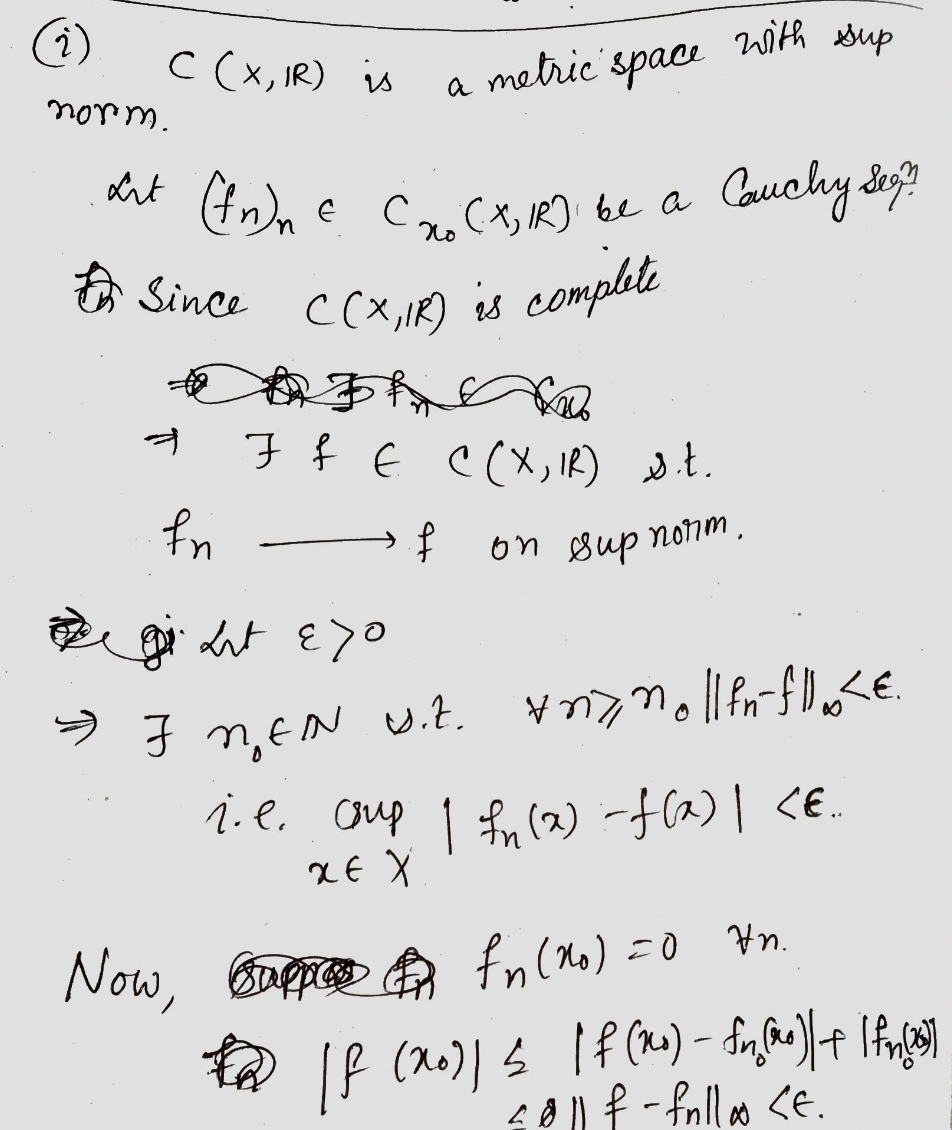 (i) C(X, IR) is a metric space with sup
norm.
Let (fn)n ∈ Cx₀(X, IR) be a Cauchy Seqn.
Since C(X, IR) is complete
⇒ ∃ f ∈ C(X, IR) s.t.
fn ⟶ f on sup norm.
Let ε>0
⇒ ∃ n₀∈IN s.t. ∀ n⩾n₀ ||fn-f||∞<ε.
i.e. sup | fn(x) - f(x) | <ε..
x∈X
Now, fn(x₀) = 0 ∀n.
|f(x₀)| ≤ |f(x₀) - fn₀(x₀)| + |fn₀(x₀)|
≤ || f - fn||∞ <ε.